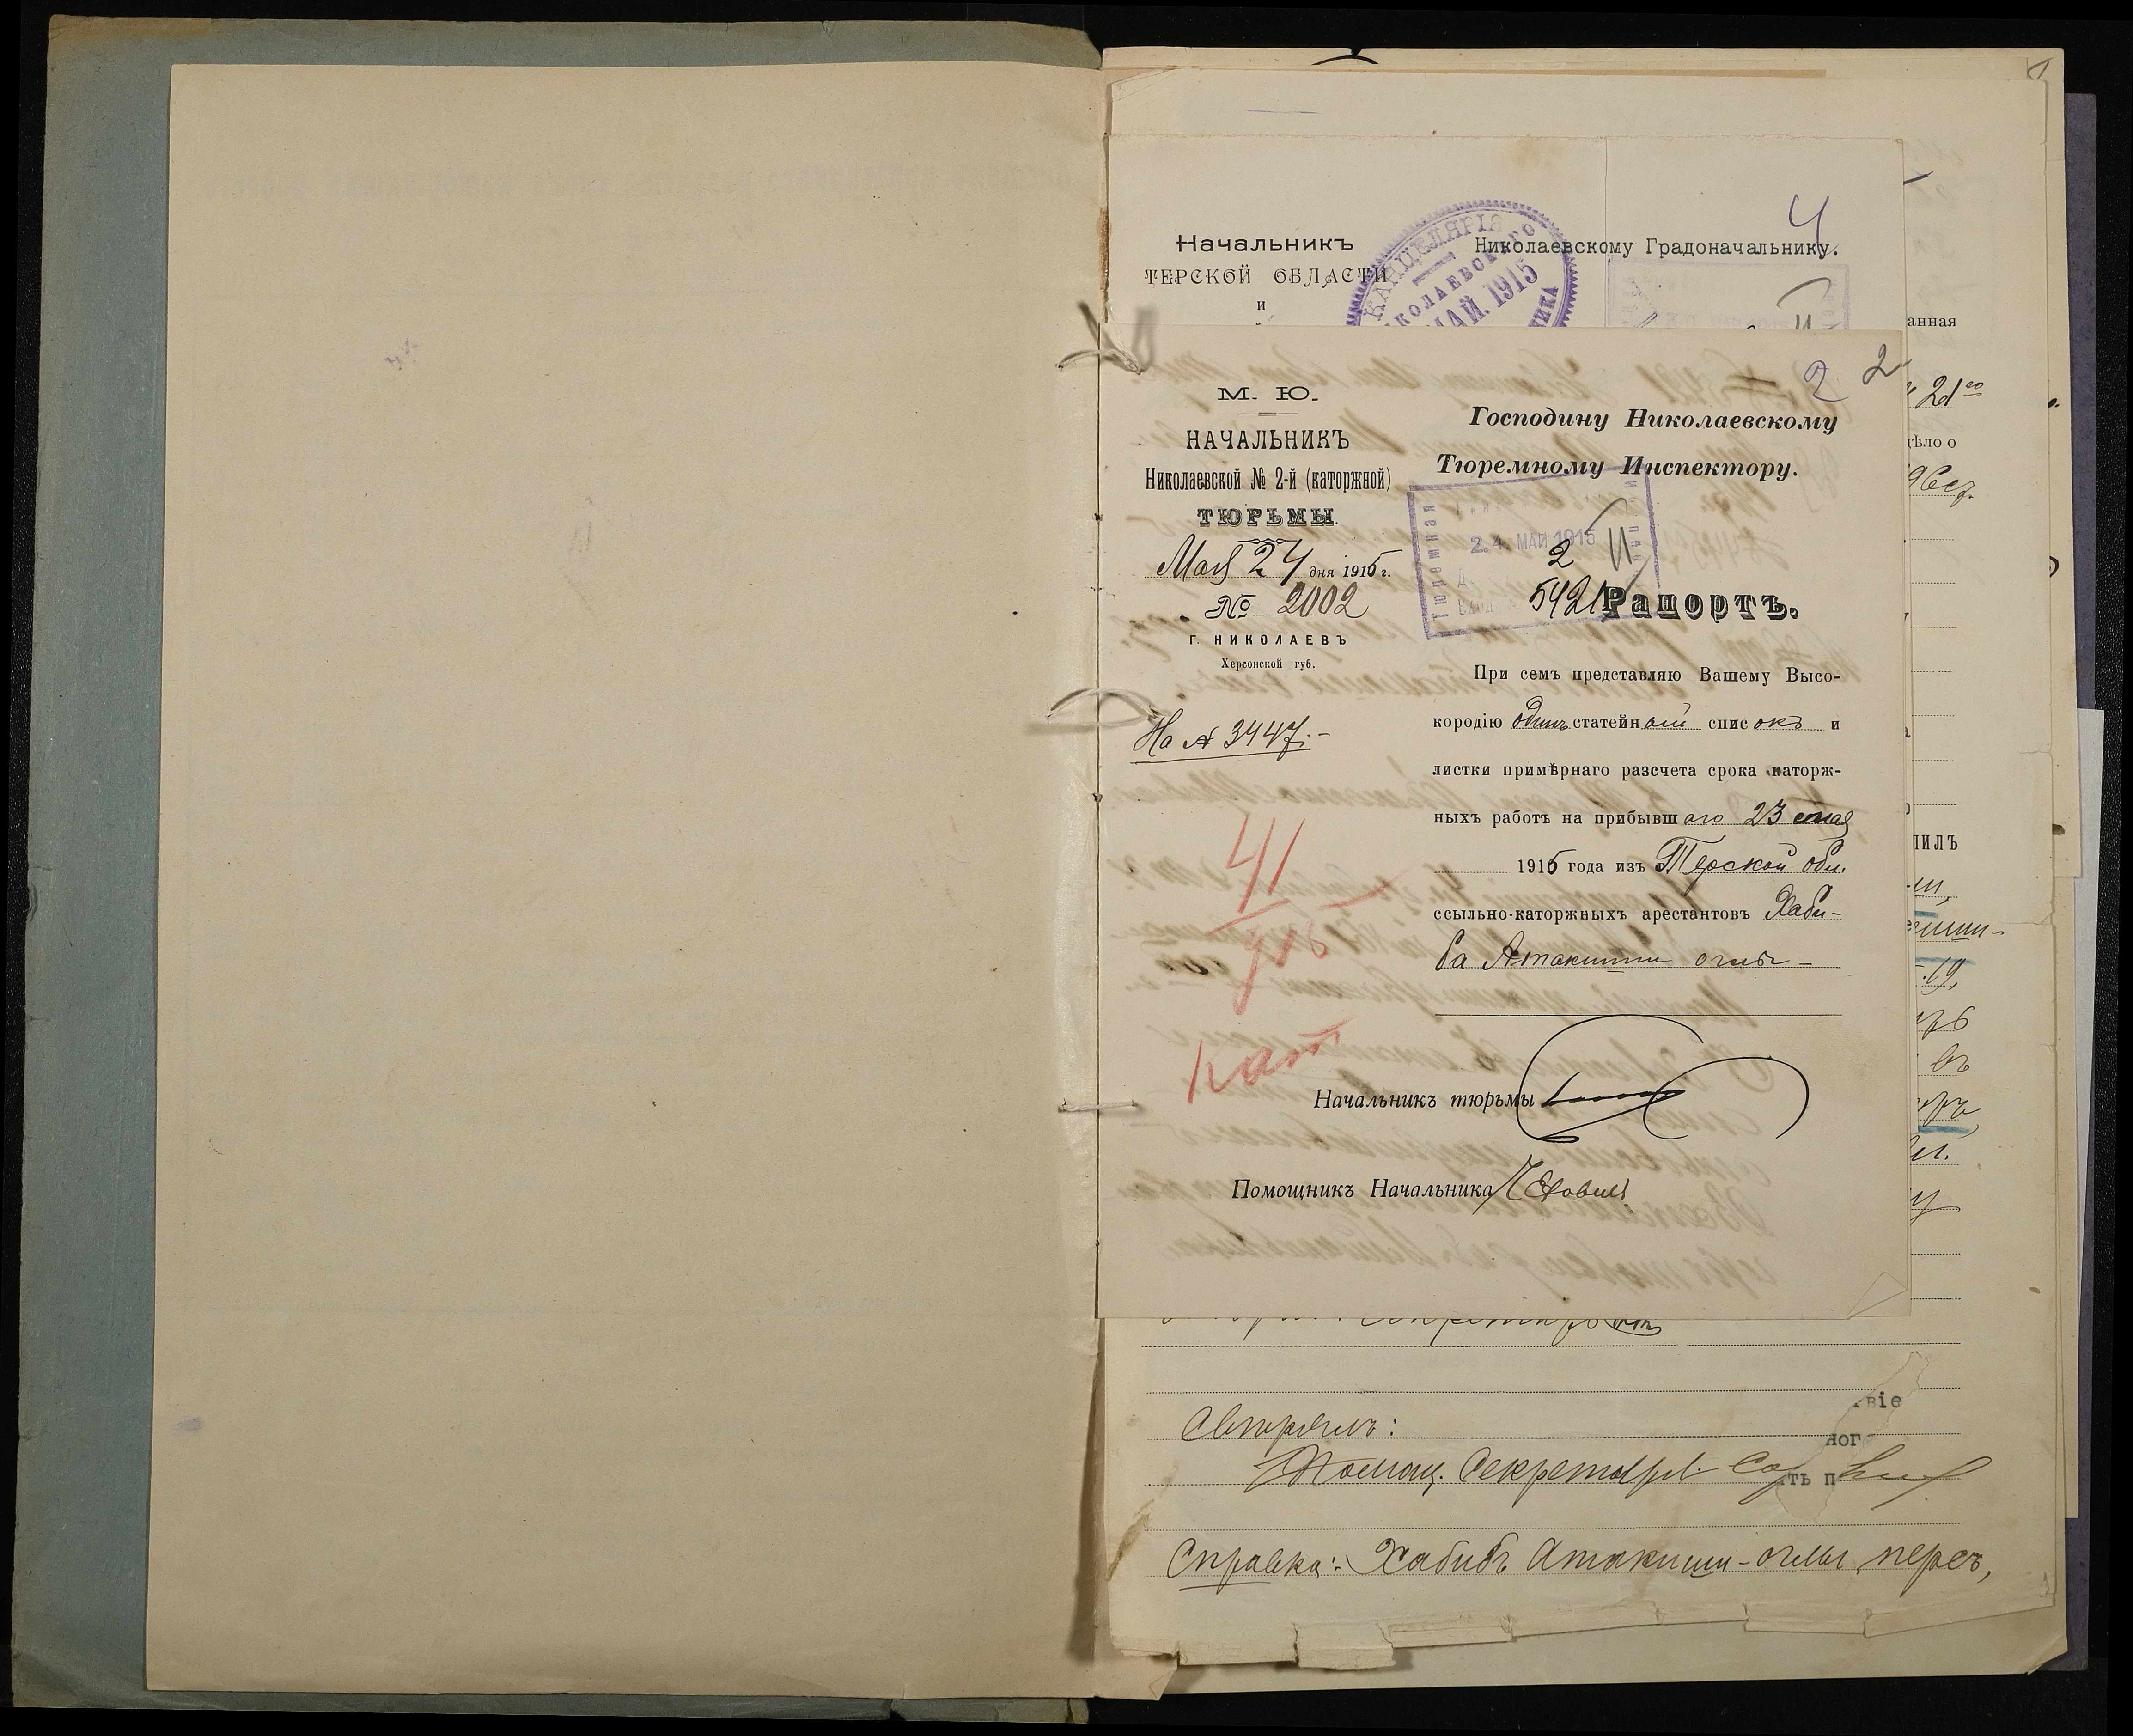 Начальникъ
ТЕРСКОЙ ОБЛАСТИ
и
Николаевскому Градоначальнику.
4
КАНЦЕЛЯРІЯ
МАЙ. 1915
анная
дѣло о
2
2
М. Ю.
НАЧАЛЬНИКЪ
Николаевской № 2-й (каторжной)
ТЮРЬМЫ.
Мая 24 дня 1915 г.
№ 2002
г. НИКОЛАЕВЪ
Херсонской губ.
На № 3447.-
41
915
кат
Господину Николаевскому
Тюремному Инспектору.
Тюремная
24 МАЙ 1915
2
5421
Рапортъ.
При семъ представляю Вашему Высо-
кородію одинъ статейный списокъ и
листки примѣрнаго разсчета срока каторж-
ныхъ работъ на прибывшаго 23 мая
1915 года изъ Терской обл.
ссыльно-каторжныхъ арестантовъ Хаби-
ба Атакиши оглы-
Начальникъ тюрьмы
Помощникъ Начальника
твіе
ног
ть п
Свѣрялъ:
Помощ. Секретаря
Справка: Хабибъ Атакиши-оглы, персъ,